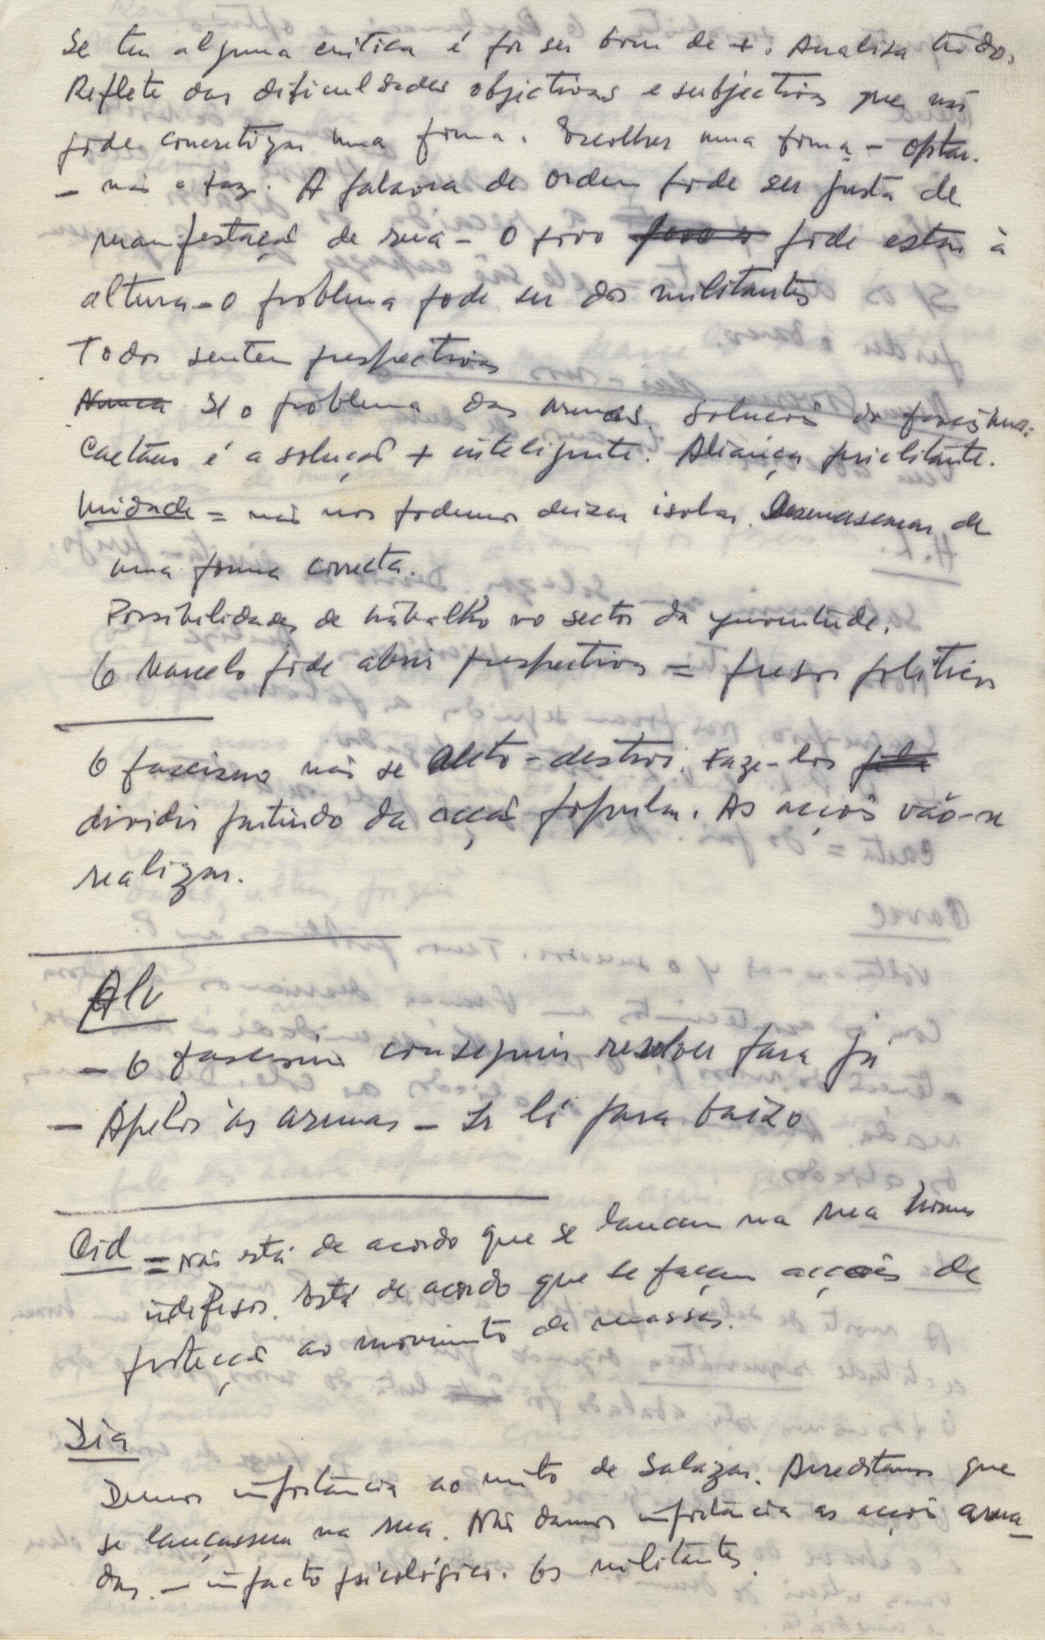 Se tem alguma critica é por ser bom de +. Analisa tudo.
Reflete das dificuldades objectivas e subjectivas que não
pode concretizar uma forma. Escolher uma forma - optar.
- não o faz. A palavra de ordem pode ser justa de
manifestação de rua - O povo pode estar à
altura - o problema pode ser dos militantes
Todos sentem perspectivas
Nunca se o problema das armas. Soluções do fascismo.
Caetano é a solução + inteligente. Aliança
Unidade = não nos podemos deixar isolar. Desmascarar de
uma forma correcta.
Possibilidades de trabalho no sector da juventude.
O Marcelo pode abrir perspectivas = presos politicos
O fascismo não se auto-destroi. Faze-los
dividir partindo da acção popular. As acções vão-se
realizar.
Alv
- O fascismo conseguiu resolver para já
- Apelos às armas - se lá para baixo
Cid = Não está de acordo que se lancem na rua homens
indefesos. Está de acordo que se façam acções de
protecção ao movimento de massas.
Dia
Demos importância ao mito de Salazar. Acreditamos que
se lançassem na rua. Não damos importância as acções arma-
das. - impacto psicológico. Os militantes.